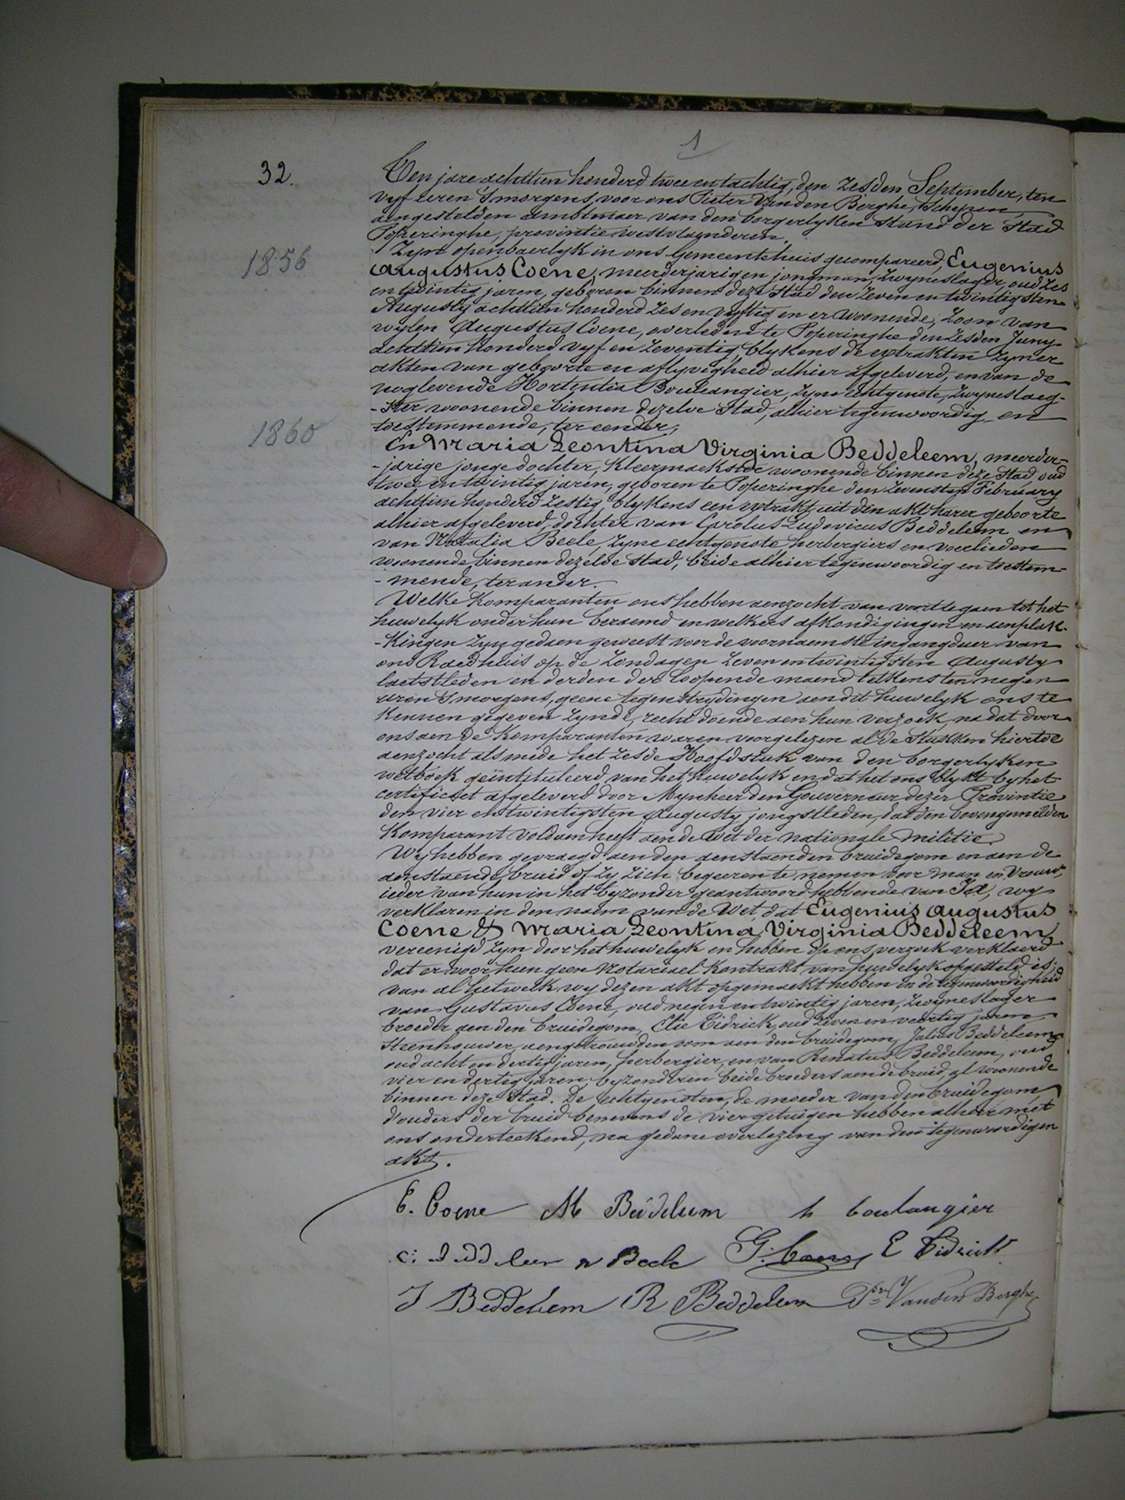 1
32.
Ten jare achttien honderd twee en tachtig, den zesden September, ten
vyf uren 's morgens, voor ons Pieter Vanden Berghe, Schepen
aengestelden ambtenaer van den borgerlyken stand der Stad
Poperinghe, provintie westvlaenderen.
Zyn openbaerlyk in ons Gemeentehuis gecompareerd, Eugenius
1856
Augustus Coene, meerderjarigen jongman, zwyneslager, oud zes
en twintig jaren, geboren binnen deze Stad den zeven en twintigsten
Augusty achttien honderd zes en vyftig en er woonende, zoon van
wylen Augustus Coene, overleden te Poperinghe den zesden Juny
achttien honderd vyf en zeventig, blykens de extrakten zyner
akten van geboorte en aflyvigheid alhier afgeleverd, en van de
noglevende Hortentia Boulangier, zyne echtgenote, zwyneslaeg-
-ster woonende binnen dezelve Stad, alhier tegenwoordig en
toestemmende, ter eender,
1860
En Maria Leontina Virginia Beddeleem, meerder-
-jarige jonge dochter, kleermaekster woonende binnen deze Stad oud
twee en twintig jaren, geboren te Poperinghe den zevensten February
achttien honderd zestig, blykens een extrakt uit den akt harer geboorte
alhier afgeleverd, dochter van Carolus Ludovicus Beddeleem en
van Natalia Beele, zyne echtgenote herbergiers en voerlieden
woonende binnen dezelve Stad, beide alhier tegenwoordig en toestem-
-mende, ter ander.
Welke komparanten ons hebben aenzocht van voort te gaen tot het
huwelyk onder hun beraemd en welkers afkondigingen en aenplak-
-kingen zyn gedaen geweest voor de voornaemste ingangdeur van
ons Raedhuis op de zondagen zeven en twintigsten Augusty
laetstleden en derden der loopende maend telkens ten negen
uren 's morgens, geene tegenstrydingen aen dit huwelyk ons te
kennen gegeven zynde, recht doende aen hun verzoek, na dat door
ons aen de komparanten waren voorgelezen al de stukken hiertoe
aenzocht als mede het zesde Hoofdstuk van den borgerlyken
wetboek geintituleerd van het huwelyk en dat het ons blykt by het
certificaet afgeleverd door Mynheer den Gouverneur dezer Provintie
den vier en twintigsten Augusty jongstleden, dat den bovengemelden
komparant voldaen heeft aen de wet der nationale militie.
Wy hebben gevraegd aen den aenstaenden bruidegom en aen de
aenstaende bruid of zy zich begeeren te nemen voor man en vrouw,
ieder van hun in het byzonder geantwoord hebbende van Ja, wy
verklaren in den naem van de Wet, dat Eugenius Augustus
Coene & Maria Leontina Virginia Beddeleem
vereenigd zyn door het huwelyk en hebben op ons verzoek verklaerd
dat er voor hun geen notarieel kontrakt van huwelyk opgesteld is;
van al hetwelk wy dezen akt opgemaekt hebben in de tegenwoordigheid
van Gustavus Coene, oud negen en twintig jaren, zwyneslager
broeder aen den bruidegom, Elie Tidrick, oud zeven en veertig jaren
steenhouwer, aengetrouwden oom aen den bruidegom, Julius Beddeleem
oud acht en dertig jaren, herbergier, en van Renatus Beddeleem, oud
vier en dertig jaren, byzonderen beide broeders aen de bruid, al woonende
binnen deze Stad. De echtgenoten, de moeder van den bruidegom
d'ouders der bruid benevens de vier getuigen hebben alhier met
ons onderteekend, na gedane overlezing van den tegenwoordigen
akt.
E. Coene M Beddeleem h boulangier
c: Beddeleem n Beele G. Coene E Tidrick
J Beddeleem R Beddeleem Pr Vanden Berghe